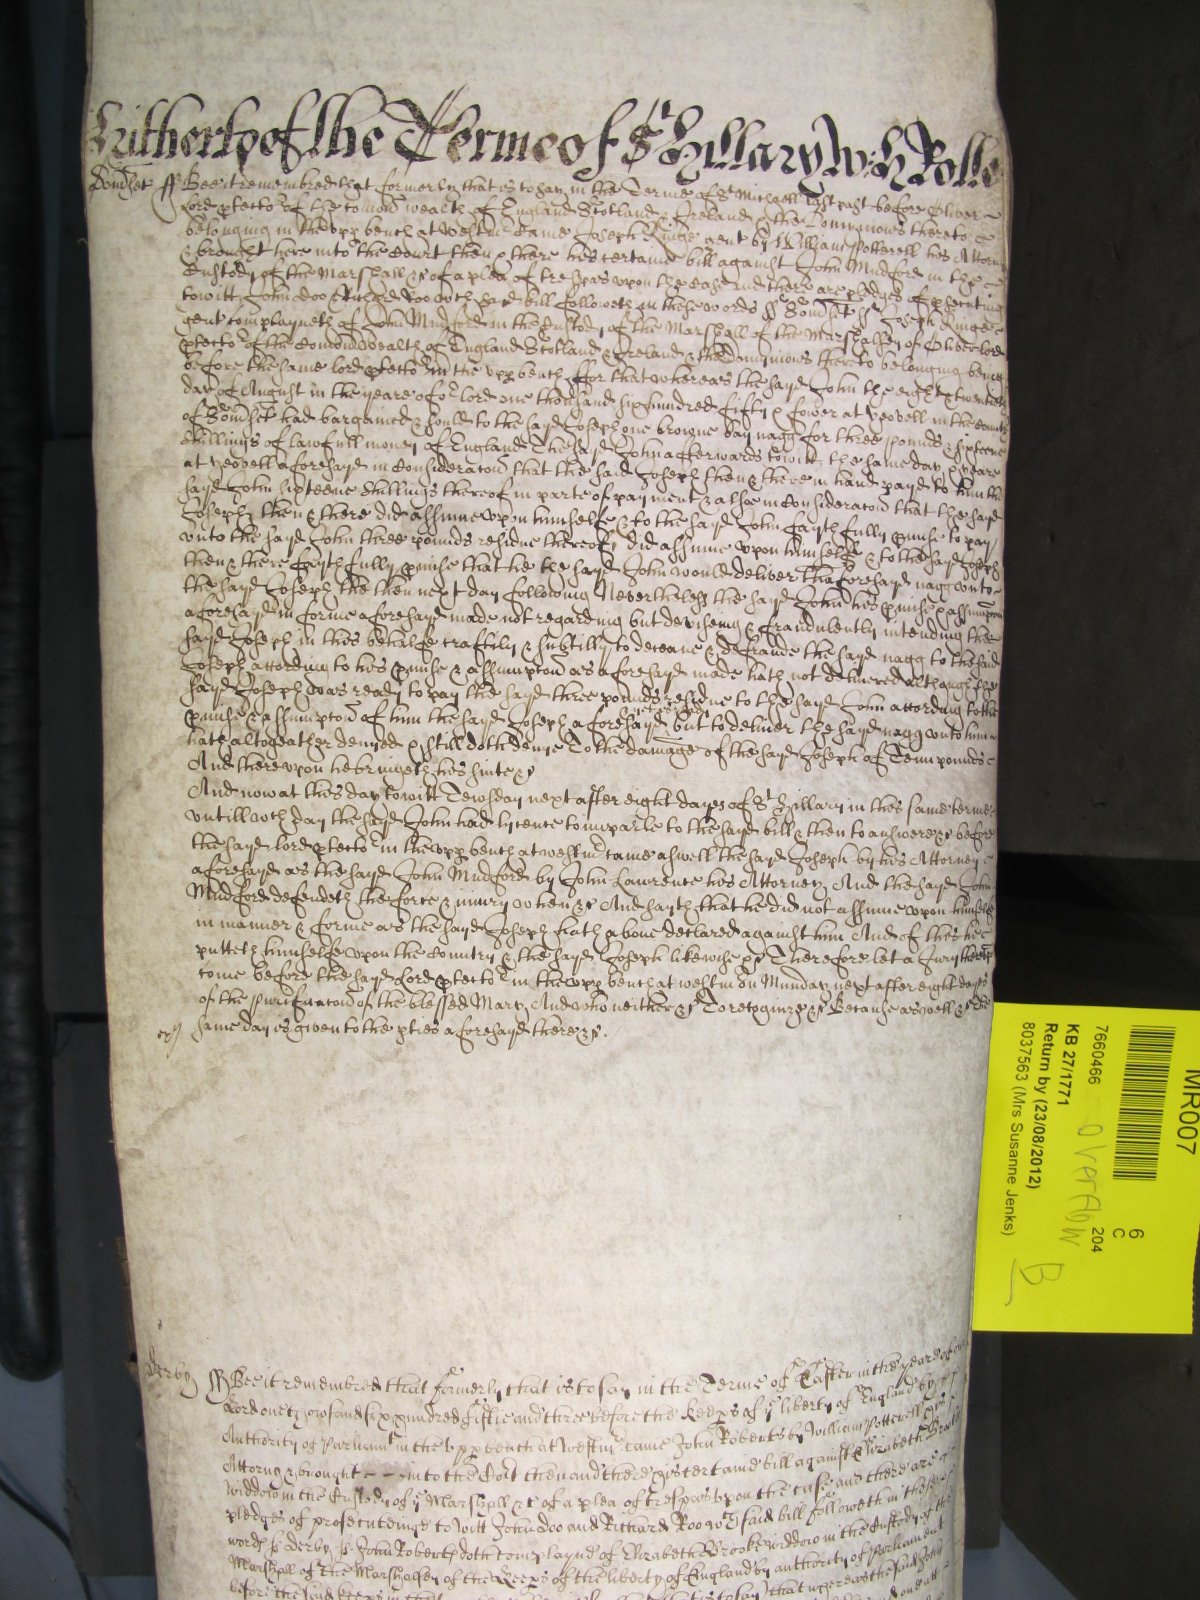 Hitherto of the Terme of St Hillary wth Rolle
Somset ss Bee it remembred that formerly that is to say in the Terme of St Michaell last past before Oliver
Lord ptector of the Comon wealth of England Scotland & Ireland & the Dominions thereto
belonging in the upp bench at Westmr Came Joseph Ringe gent by William Potterell his Attorny
& brought here into the Court then & there his certaine bill against John Mudford in the
Custody of the Marshall &c of a plea of trespas upon the case And there are pledges of psecuting
towitt John doo & Richard Roo wch said bill followeth in these words ss Somset ss Joseph Ringe
gent complayneth of John Mudford in the Custody of the Marshall of the Marshalsey of Oliver lord
ptector of the Comon Wealth of England Scotland & Ireland & the Dominions thereto belonging being
before the same lord ptector in the upp bench ffor that whereas the sayd John the eight & twentieth
day of August in the yeare of or lord one thousand six hundred fifty & fower at Yeovell in the County
of Somset had bargained & sould to the sayd Joseph one browne bay nagg for three pounds & sixteene
shillings of lawfull money of England The sayd John afterwards towitt the same day & yeare
at Yeovell aforesayd in Consideracon that the said Joseph then & there in hand payd to him the
sayd John sixteene shillings thereof in parte of payment & alsoe in Consideracon that the sayd
Joseph then & there did assume upon himselfe & to the sayd John faythfully pmise to pay
unto the sayd John three pounds residue thereof did assume upon himselfe & to the sayd Joseph
then & there faythfully pmise that he the sayd John would deliver the aforesayd nagg unto
the sayd Joseph the then next day following Neverthelesse the sayd John his pmise & assumpcon
aforesayd in forme aforesayd made not regarding but deviseing & fraudulently intending the
sayd Joseph in this behalfe craftily & subtilly to deceave & defraude the sayd nagg to the said
Joseph according to his pmise & assumpcon as aforesayd made hath not delivered although the
sayd Joseph was ready to pay the sayd three pounds residue to the sayd John according to the
pmise & assumpcon of him the sayd Joseph aforesayd but to deliver the sayd nagg unto him
hath altogeather denyed & still doth denie To the damage of the sayd Joseph of Tenn pounds
And thereupon he bringeth his suite &c
And now at this day towitt Tewsday next after eight dayes of St Hillary in this same terme
untill wch day the sayd John had lycence to imparle to the sayd bill & then to answere &c before
the sayd lord ptector in the upp bench at westmr came aswell the sayd Joseph by his Attorney
aforesayd as the sayd John Mudford by John Lawrence his Attorney And the sayd John
Mudford defendeth the force & iniury when &c And sayth that he did not assume upon himselfe
in manner & forme as the sayd Joseph hath above declared against him And of this hee
putteth himselfe upon the Country & the sayd Joseph likewise &c Therefore let a Jury thereup
come before the sayd Lord ptector in the upp bench at westmr on Munday next after eight dayes
of the purificacon of the blessed Mary And who neither &c To recognize &c Because aswell &c The
same day is given to the pties aforesayd there &c.
Derby ss Bee it remembred that formerly that is to say in the Terme of Easter in the yeare of our
Lord one thowsand six hundred fiftie and three before the Keeps of ye liberty of England by
Authority of Parliamt in the upp bench at Westmr came John Roberts by William Potterell his
Attorny & brought into the Cort then and there his certaine bill against Elizabeth Brooke
widdow in the Custody of ye Marshall &c of a plea of trespas upon the case and there are
pledges of prosecuteinge to Witt John Doo and Richard Roo wch said bill followeth in these
words ss Derby ss John Roberts doth complayne of Elizabeth Brooke widdow in the Custody of the
Marshall of the Marshalsey of the Keeps of the liberty of England by authority of Parliament
before the said Keeps in the
MR007
6
C
7660466 204
KB 27/1771
Return by (23/08/2012)
8037563 (Mrs Susanne Jenks)
overflow
B